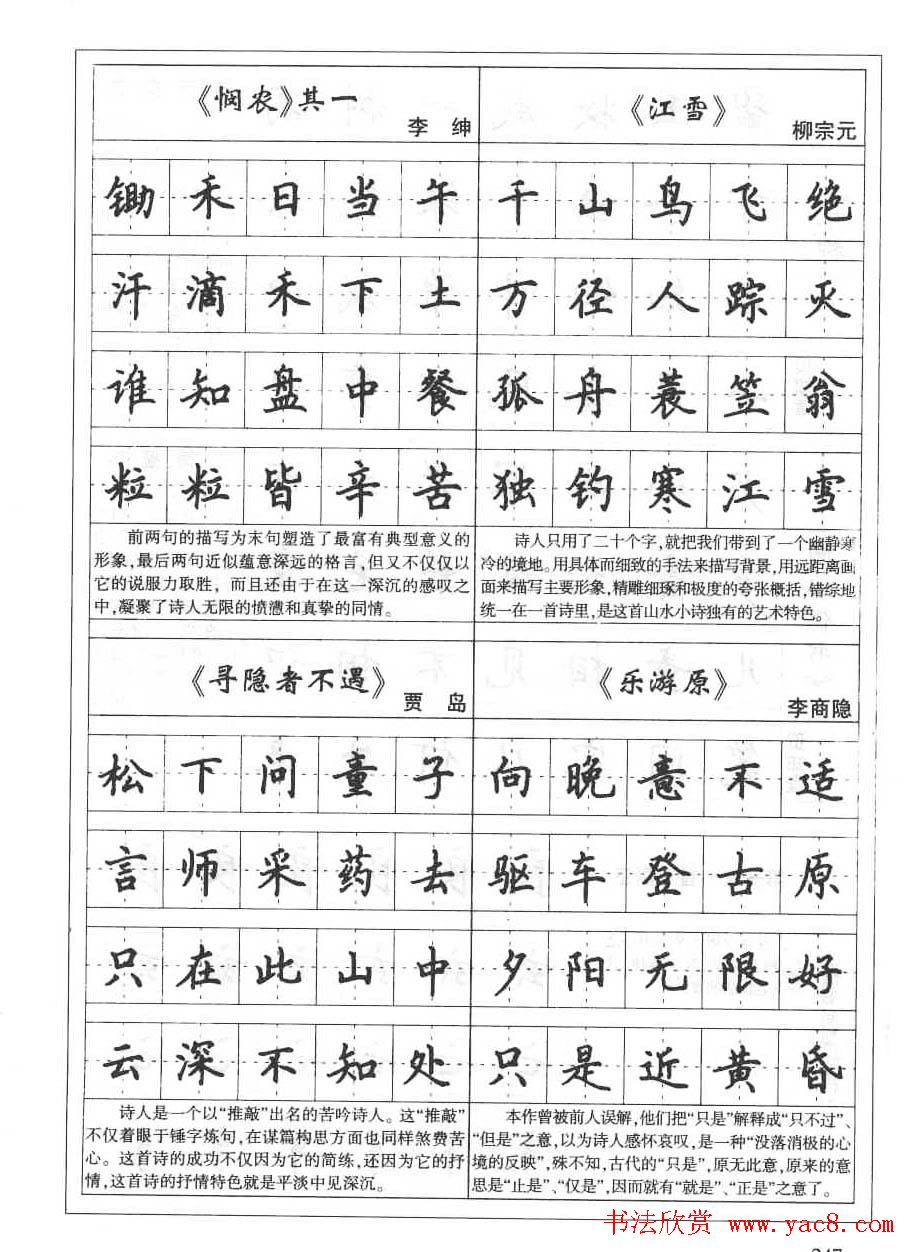 《悯农》其一
李 绅
锄禾日当午
汗滴禾下土
谁知盘中餐
粒粒皆辛苦
前两句的描写为末句塑造了最富有典型意义的
形象,最后两句近似蕴意深远的格言,但又不仅仅以
它的说服力取胜，而且还由于在这一深沉的感叹之
中,凝聚了诗人无限的愤懑和真挚的同情。
《江雪》
柳宗元
千山鸟飞绝
万径人踪灭
孤舟蓑笠翁
独钓寒江雪
诗人只用了二十个字,就把我们带到了一个幽静寒
冷的境地。用具体而细致的手法来描写背景,用远距离画
面来描写主要形象,精雕细琢和极度的夸张概括,错综地
统一在一首诗里,是这首山水小诗独有的艺术特色。
《寻隐者不遇》
贾 岛
松下问童子
言师采药去
只在此山中
云深不知处
诗人是一个以“推敲”出名的苦吟诗人。这“推敲”
不仅着眼于锤字炼句,在谋篇构思方面也同样煞费苦
心。这首诗的成功不仅因为它的简练,还因为它的抒
情,这首诗的抒情特色就是平淡中见深沉。
《乐游原》
李商隐
向晚意不适
驱车登古原
夕阳无限好
只是近黄昏
本作曾被前人误解,他们把“只是”解释成“只不过”、
“但是”之意,以为诗人感怀哀叹,是一种“没落消极的心
境的反映”,殊不知,古代的“只是”,原无此意,原来的意
思是“止是”、“仅是”,因而就有“就是”、“正是”之意了。
书法欣赏 www.yac8.com